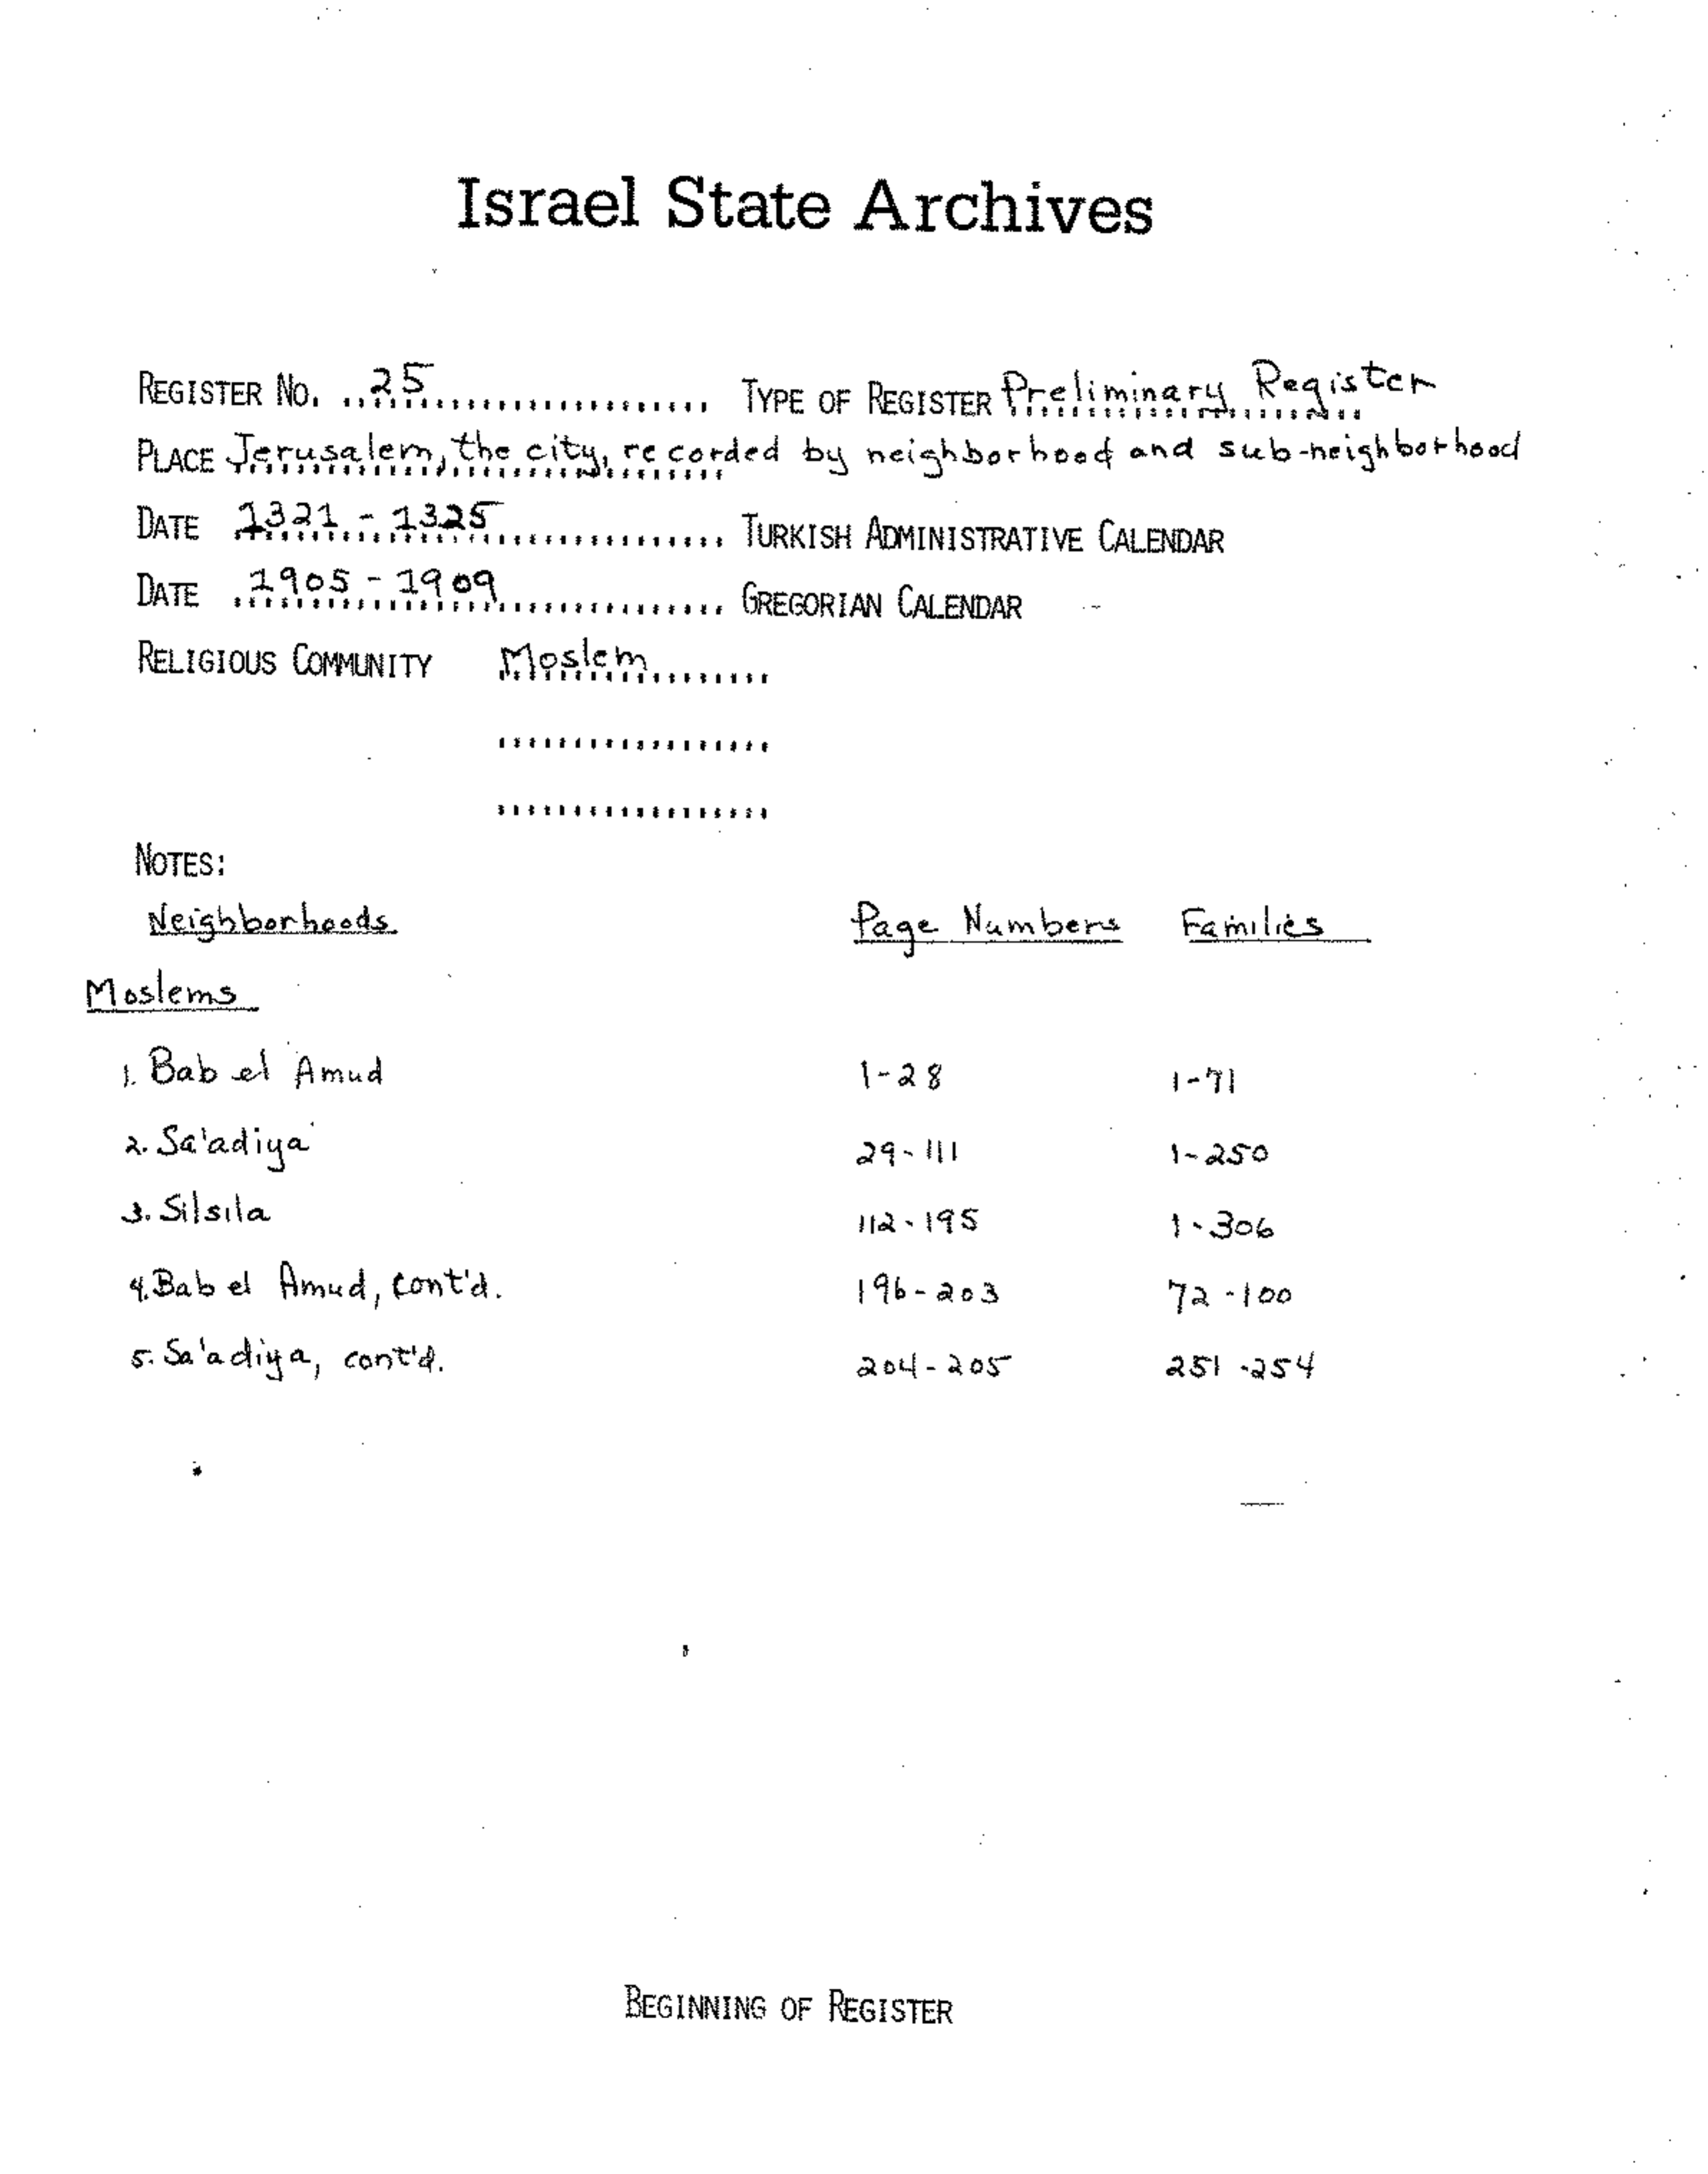 Israel State Archives
REGISTER NO. 25 TYPE OF REGISTER Preliminary Register
PLACE Jerusalem, the city, recorded by neighborhood and sub-neighborhood
DATE 1321 - 1325 TURKISH ADMINISTRATIVE CALENDAR
DATE 1905 - 1909 GREGORIAN CALENDAR
RELIGIOUS COMMUNITY Moslem
NOTES:
Neighborhoods Page Numbers Families
Moslems
1. Bab el Amud 1-28 1-71
2. Sa'adiya 29-111 1-250
3. Silsila 112-195 1-306
4. Bab el Amud, cont'd. 196-203 72-100
5. Sa'adiya, cont'd. 204-205 251-254
BEGINNING OF REGISTER